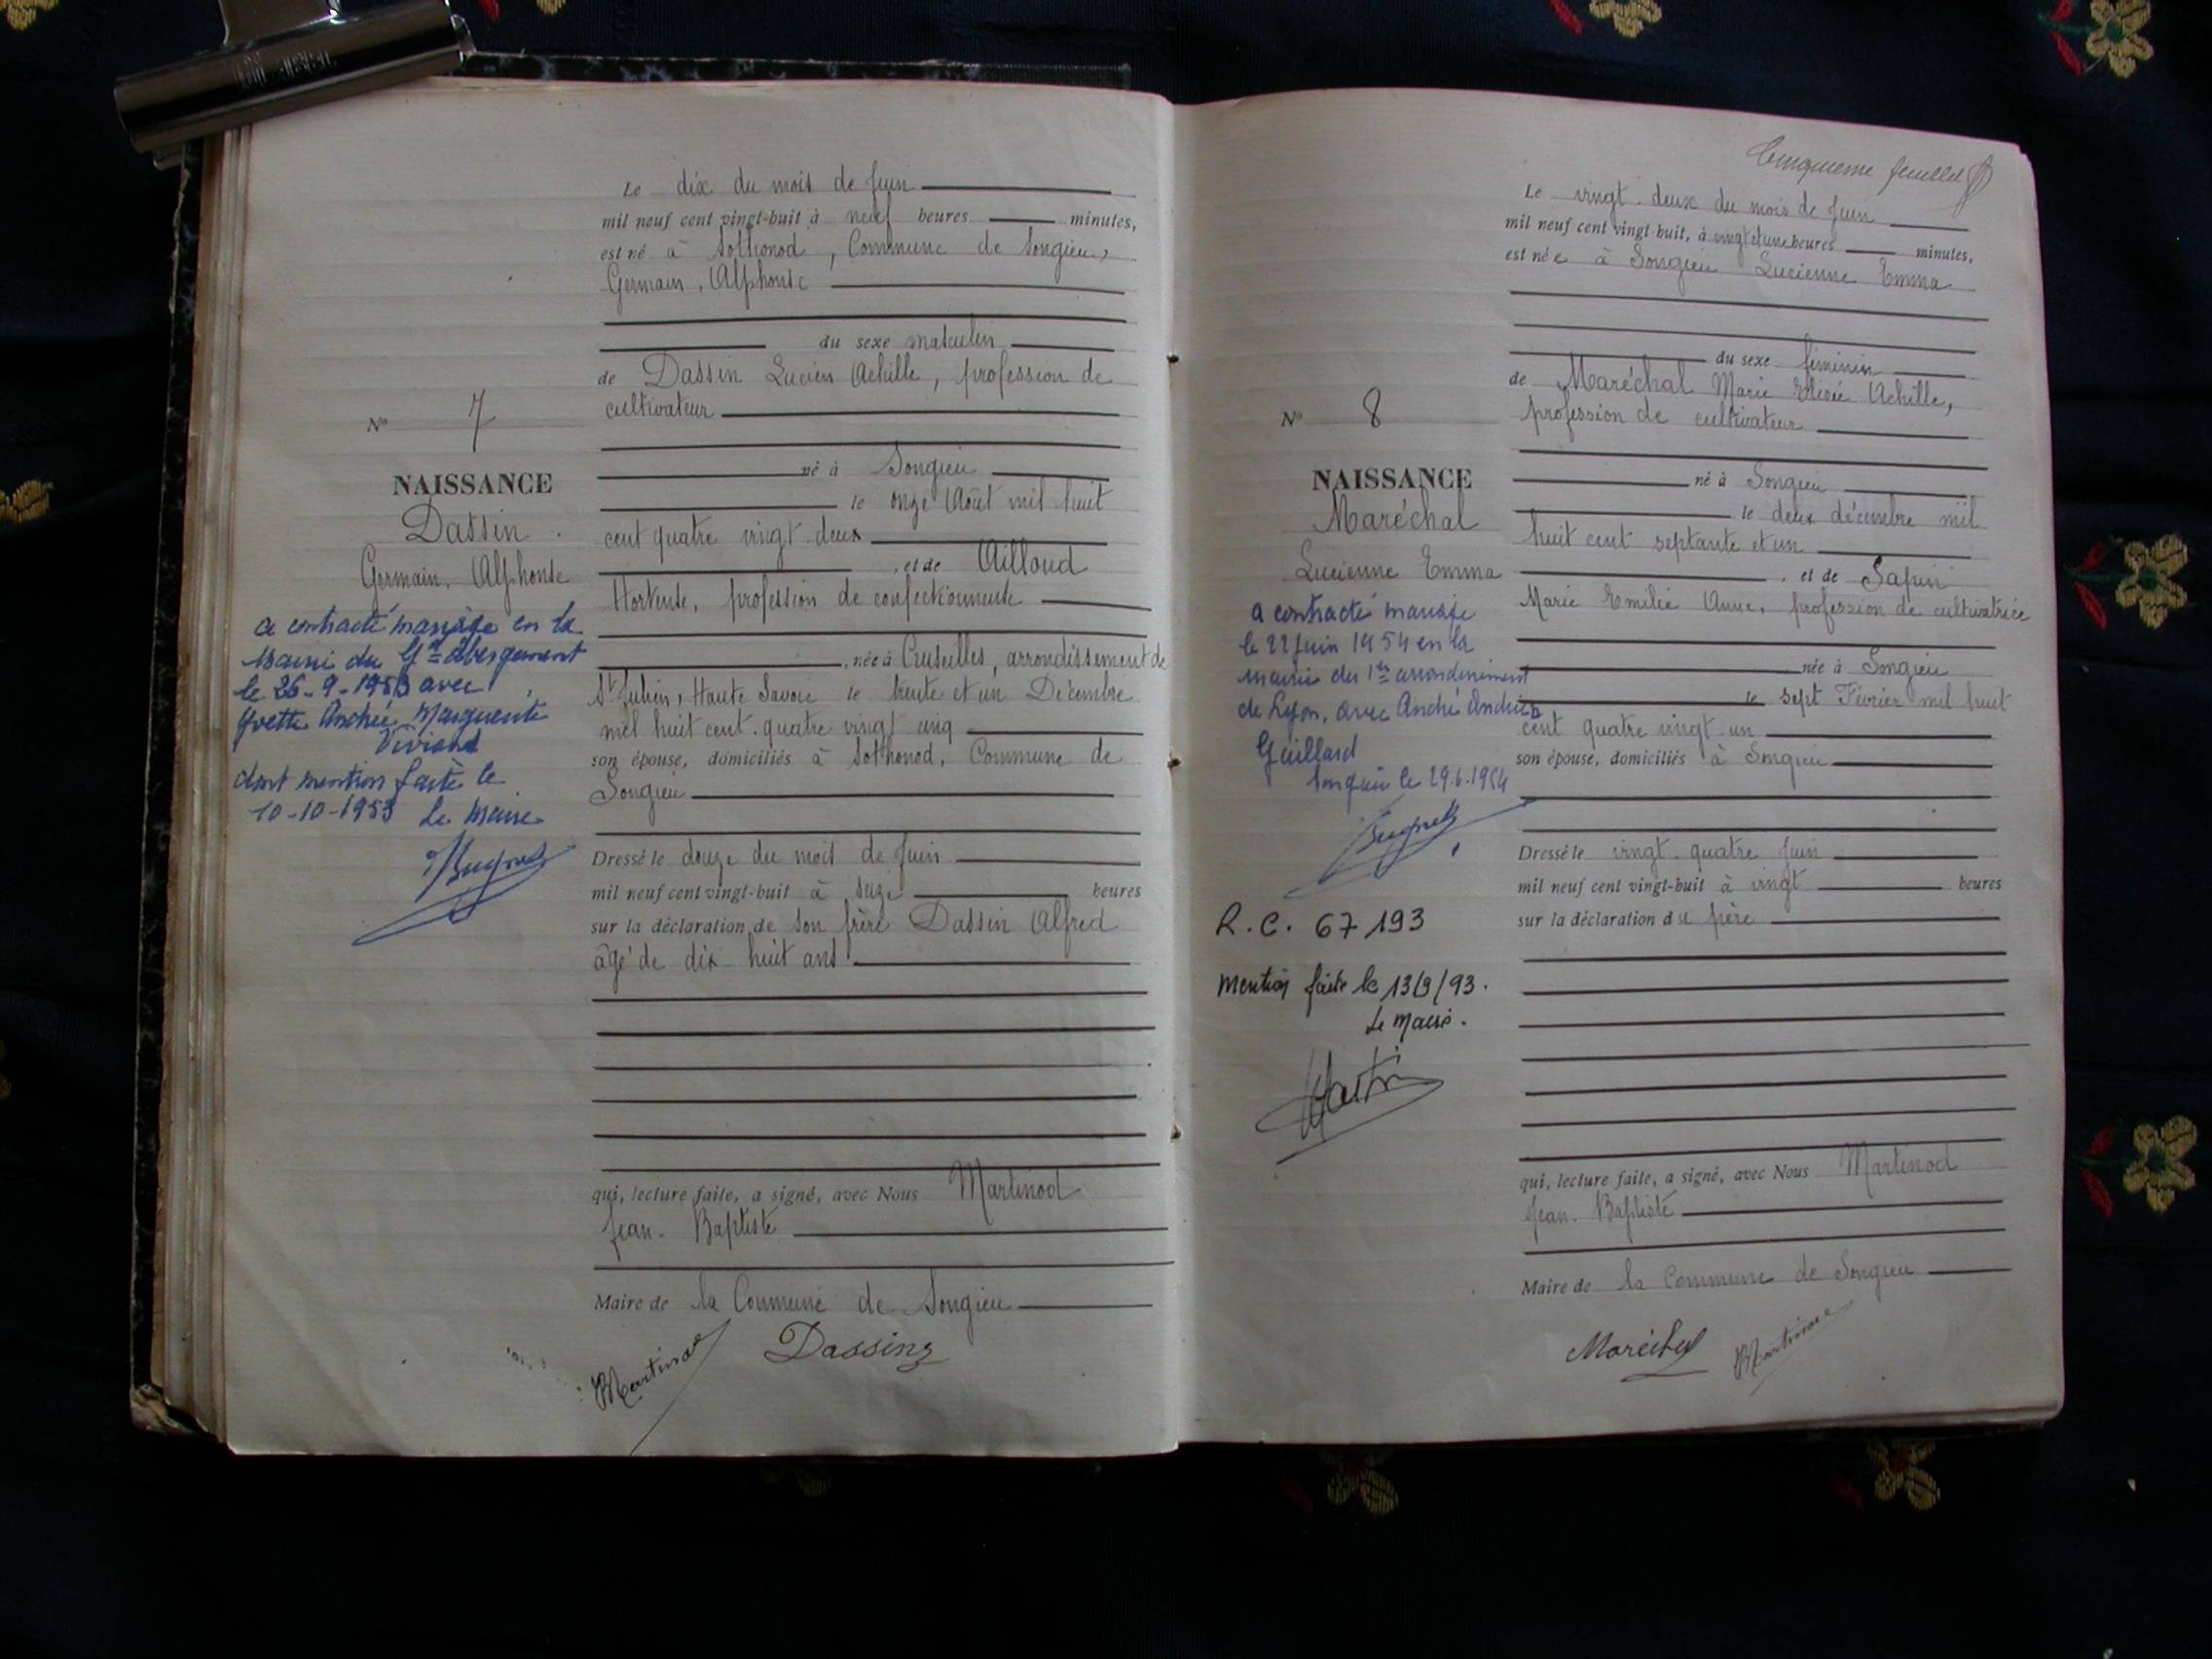 Le dix du mois de Juin
mil neuf cent vingt-huit à neuf heures minutes,
est né à Sothonod, Commune de Songieu,
Germain, Alphonse
du sexe masculin
de Dassin Lucien Achille, profession de
cultivateur
né à Songieu
le onze Août mil huit
cent quatre vingt-deux
, et de Ailloud
Hortense, profession de confectionneuse
, née à Cruseilles, arrondissement de
St Julien, Haute Savoie le trente et un Décembre
mil huit cent quatre vingt cinq
son épouse, domiciliés à Sothonod, Commune de
Songieu
Dressé le douze du mois de Juin
mil neuf cent vingt-huit à seize heures
sur la déclaration de son frère Dassin Alfred
âgé de dix-huit ans
qui, lecture faite, a signé, avec Nous Martinod
Jean-Baptiste
Maire de la Commune de Songieu
Martinod
Dassin
No 7
NAISSANCE
Dassin
Germain, Alphonse
a contracté mariage en la
Mairie du Gd Abergement
le 26-9-1953 avec
Yvette Andrée Marguerite
Viviand
dont mention faite le
10-10-1953 Le Maire
Cinquième feuillet
Le vingt-deux du mois de Juin
mil neuf cent vingt-huit, à vingt et une heures minutes,
est née à Songieu Lucienne Emma
du sexe féminin
de Maréchal Marie Elisée Achille,
profession de cultivateur
né à Songieu
le deux décembre mil
huit cent septante et un
, et de Sapin
Marie Emilie Anne, profession de cultivatrice
née à Songieu
le sept Février mil huit
cent quatre vingt-un
son épouse, domiciliés à Songieu
Dressé le vingt-quatre Juin
mil neuf cent vingt-huit à vingt heures
sur la déclaration du père
qui, lecture faite, a signé, avec Nous Martinod
Jean-Baptiste
Maire de la Commune de Songieu
Maréchal
Martinod
No 8
NAISSANCE
Maréchal
Lucienne Emma
a contracté mariage
le 22 Juin 1954 en la
mairie du 1er arrondissement
de Lyon, avec André
Guillard
Songieu le 29.6.1954
R.C. 67 193
Mention faite le 13/9/93.
Le Maire.
Martin